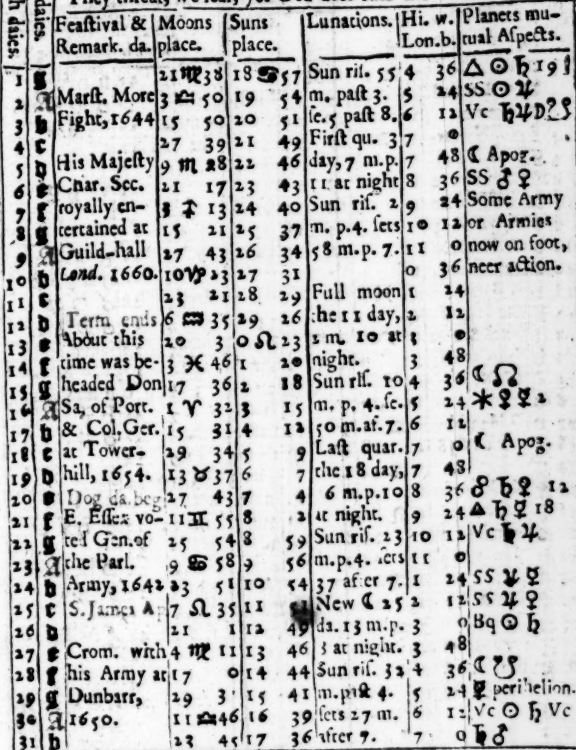 Feaſtival & Moons Suns Lunations. Hi. w. Planets mu-
Remark. da. place. place. Lon.b. tual Aſpects.
1 g 21 ♍ 38 18 ♋ 57 Sun riſ. 55 4 36 △ ☉ ♄ 19
2 A Marſt. More 3 ♎ 50 19 54 m. paſt 3. 5 24 SS ☉ ♃
3 b Fight, 1644 15 50 20 51 ſe. 5 paſt 8. 6 12 Vc ♄ ♃
4 c 27 39 21 49 Firſt qu. 3 7 0
5 d His Majeſty 9 ♏ 28 22 46 day, 7 m.p. 7 48 ☾ Apog.
6 e Char. Sec. 21 17 23 43 11 at night 8 36 SS ♂ ♀
7 f royally en- 3 ♐ 13 24 40 Sun riſ. 2 9 24 Some Army
8 g tertained at 15 21 25 37 m. p.4. ſets 10 12 or Armies
9 A Guild-hall 27 43 26 34 58 m.p. 7. 11 0 now on foot,
10 b Lond. 1660. 10 ♑ 23 27 31 0 36 neer action.
11 c 23 21 28 29 Full moon 1 24
12 d Term ends 6 ♒ 35 29 26 the 11 day, 2 12
13 e About this 20 3 0 ♌ 23 2 m. 10 at 3 0
14 f time was be- 3 ♓ 46 1 20 night. 3 48
15 g headed Don 17 36 2 18 Sun riſ. 10 4 36 ☾ ☊
16 A Sa, of Port. 1 ♈ 32 3 15 m. p. 4. ſe. 5 24 ⚹ ♀ ☿ 2
17 b & Col. Ger. 15 31 4 12 50 m. af. 7. 6 12
18 c at Tower- 29 34 5 9 Laſt quar. 7 0 ☾ Apog.
19 d hill, 1654. 13 ♉ 37 6 7 the 18 day, 7 48
20 e Dog da. beg 27 43 7 4 6 m.p. 10 8 36 ☍ ♄ ♀ 12
21 f E. Eſſex vo- 11 ♊ 55 8 2 at night. 9 24 △ ♄ ☿ 18
22 g ted Gen. of 25 54 8 59 Sun riſ. 23 10 12 Vc ♄ ♃
23 A the Parl. 9 ♋ 58 9 56 m.p.4. ſets 11 0
24 b Army, 1642 23 51 10 54 37 after 7. 1 24 SS ♃ ☿
25 c S. James Ap 7 ♌ 35 11 New ☾ 25 2 12 SS ♃ ♀
26 d 21 1 12 49 da. 13 m.p. 3 0 Bq ☉ ♄
27 e Crom. with 4 ♍ 11 13 46 3 at night. 3 48
28 f his Army at 17 0 14 44 Sun riſ. 32 4 36 ☾ ☋
29 g Dunbarr, 29 3 15 41 m. paſt 4. 5 24 ☿ perihelion.
30 A 1650. 11 ♎ 46 16 39 ſets 27 m. 6 12 Vc ☉ ♄ Vc
31 b 23 45 17 36 after 7. 7 0 ♄ ♂